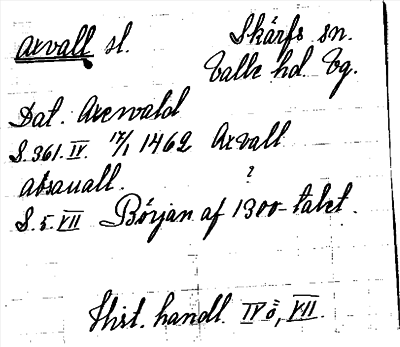 Arvall sl. Skärfs sn.
Valle hd. Vg.
Dat. Arewald
S. 361. IV. 17/1 1462 Arvall
atsauall. ?
S. 5. VII Början af 1300-talet.
Hist. handl. IV ö, VII.